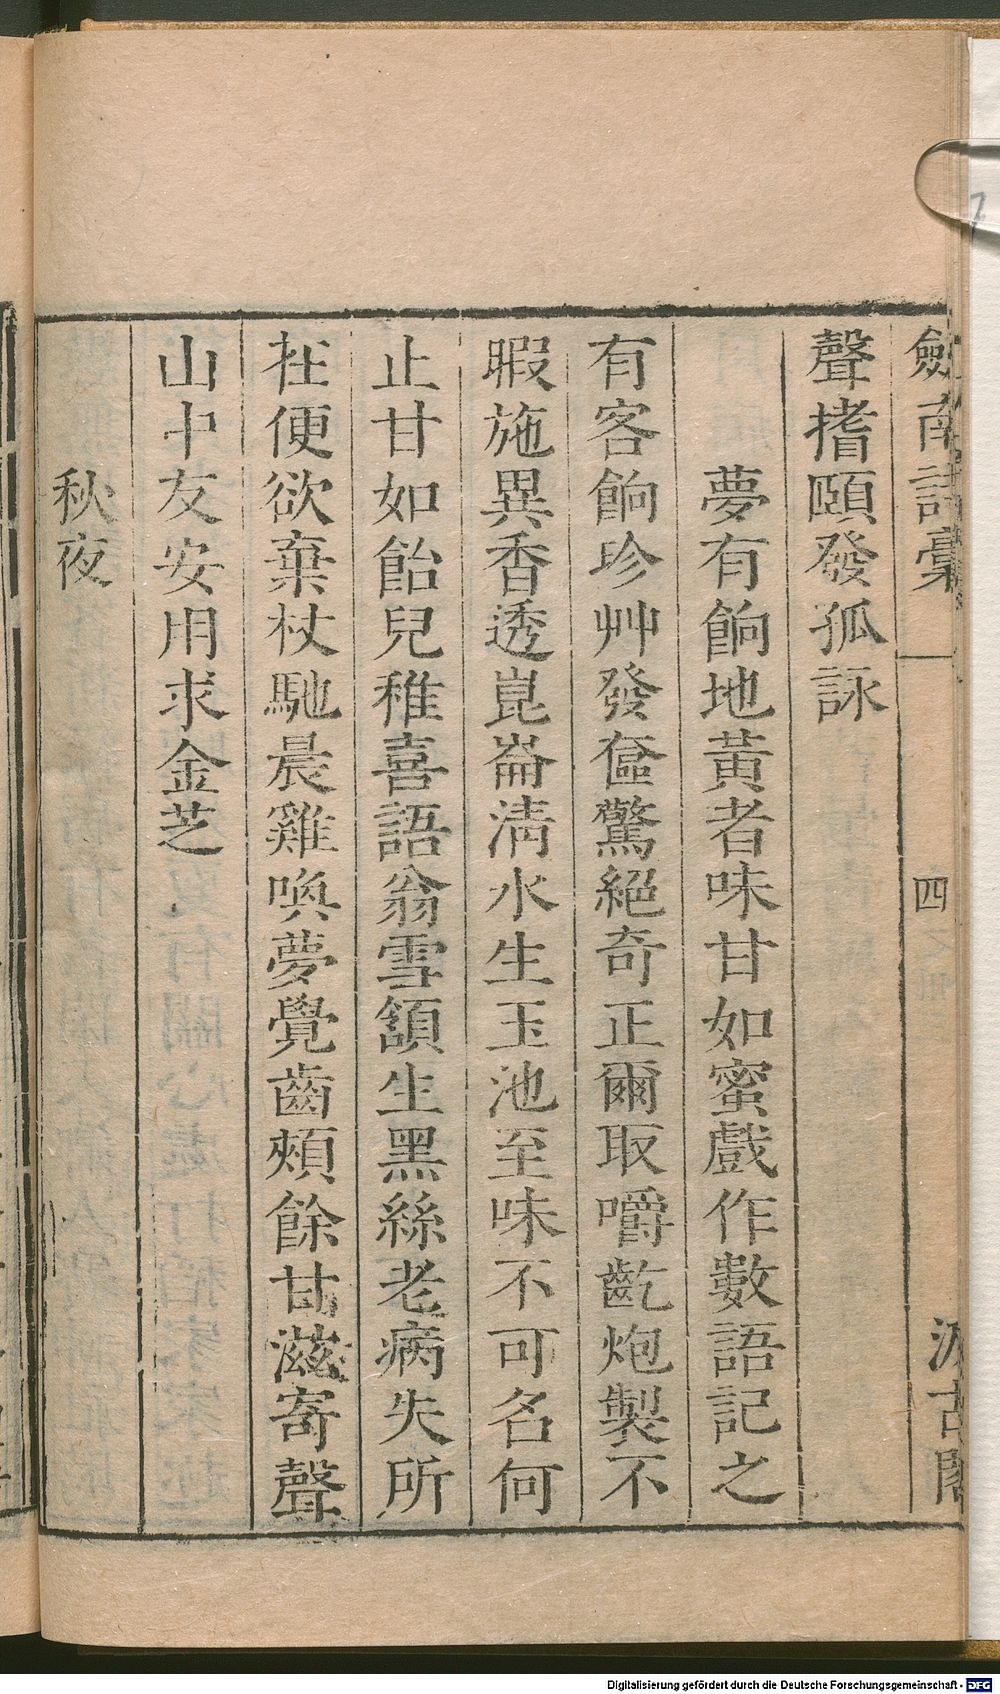 劍南詩稾
四
汲古閣
聲搘頤發孤詠
夢有餉地黃者味甘如蜜戲作數語記之
有客餉珍艸發奩驚絕奇正爾取嚼齕炮製不
暇施異香透崑崙淸水生玉池至味不可名何
止甘如飴兒稚喜語翁雪頷生黑絲老病失所
在便欲棄杖馳晨雞喚夢覺齒頰餘甘滋寄聲
山中友安用求金芝
秋夜
Digitalisierung gefördert durch die Deutsche Forschungsgemeinschaft - DFG